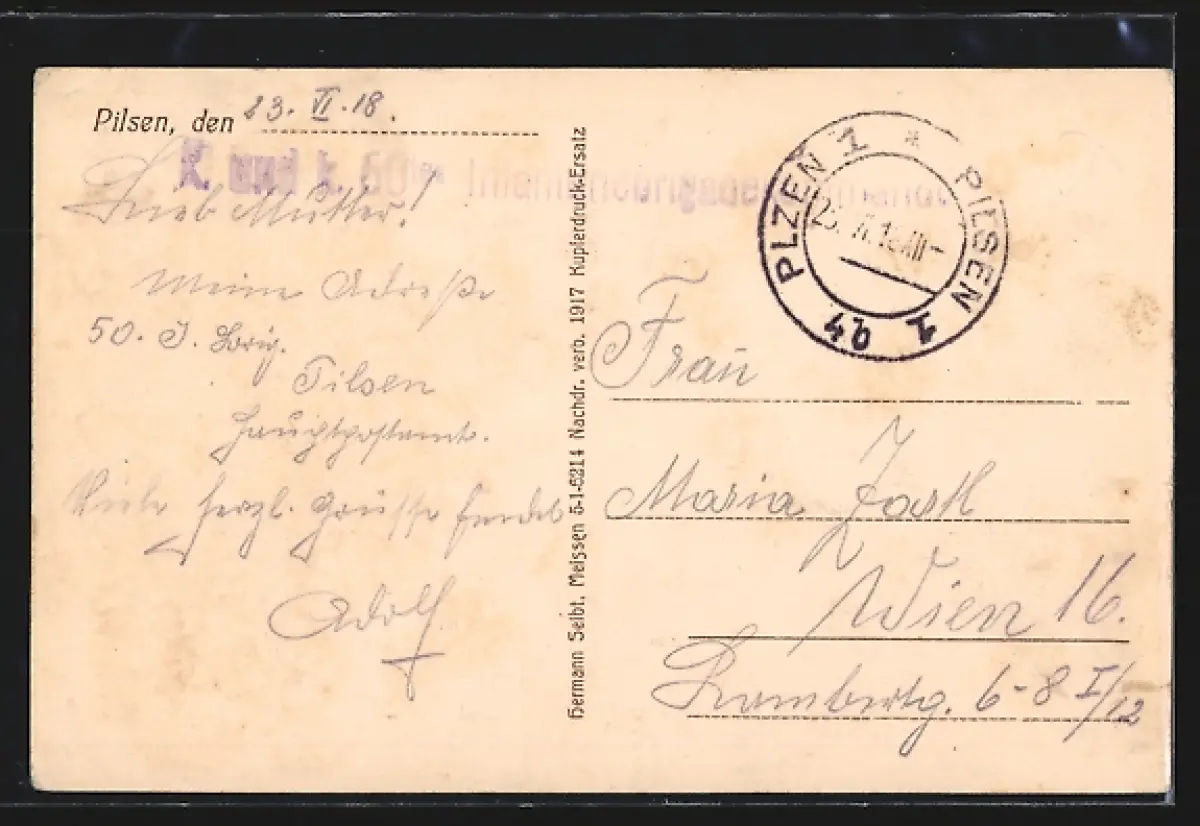 Pilsen, den 23. VI. 18.
K. und k. 50ten Infanteriebrigadekommando
Lieb Mutter!
Meine Adreße
50. I. Brig.
Pilsen
Hauptpostamt.
Viele herzl. Grüsse sendet
Adolf
Hermann Seibt. Meissen 5-1-6214 Nachdr. verb. 1917 Kupferdruck-Ersatz
PLZEN 1 * PILSEN 1
Frau
Maria
Wien 16.
Lambertg. 6-8 I/12